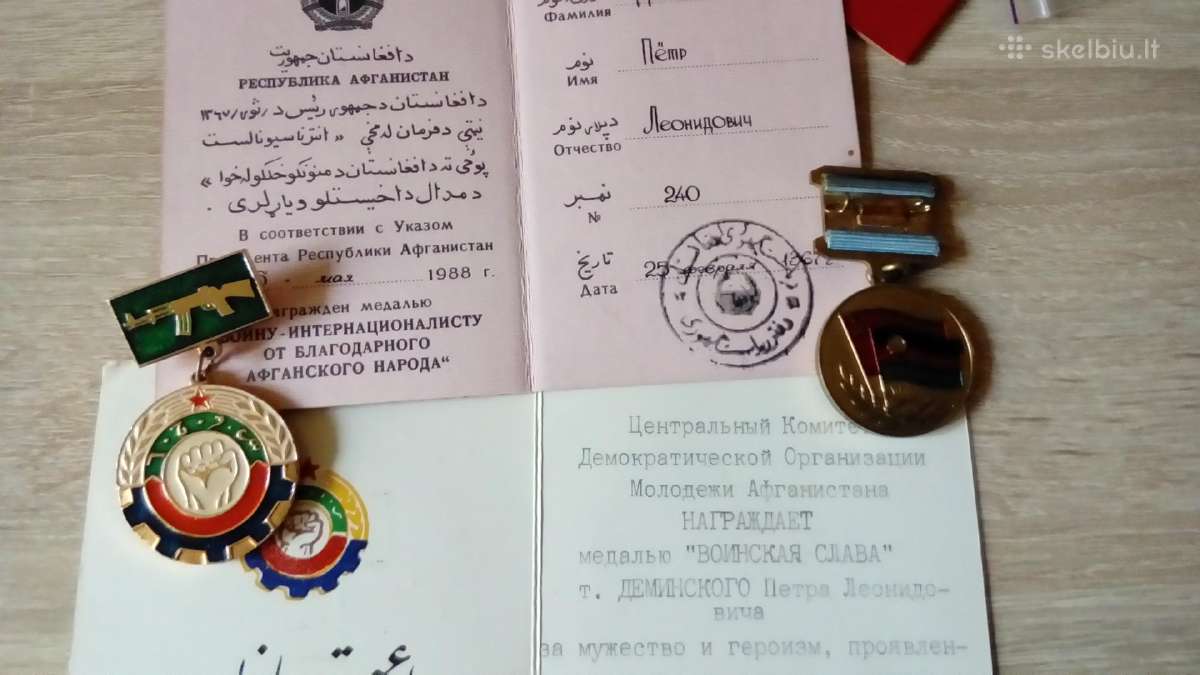 skelbiu.lt
دافغانستان جمهوریت
РЕСПУБЛИКА АФГАНИСТАН
دافغانستان دجمهوری رئیس د
دفرمان له مخې « انترناسیونالست
ته دافغانستان دمننکوخلکولهخوا »
دمدال داخیستلو ویاړلری .
В соответствии с Указом
Республики Афганистан
мая 1988 г.
медалью
ИНТЕРНАЦИОНАЛИСТУ
ОТ БЛАГОДАРНОГО
АФГАНСКОГО НАРОДА“
Фамилия
نوم Пётр
Имя
دپلار نوم Леонидович
Отчество
نمبر 240
№
تاریخ 25 февраля
Дата
Центральный
Демократической Организации
Молодежи Афганистана
НАГРАЖДАЕТ
медалью "ВОИНСКАЯ СЛАВА"
т. ДЕМИНСКОГО Петра Леонидо-
вича
за мужество и героизм, проявлен-